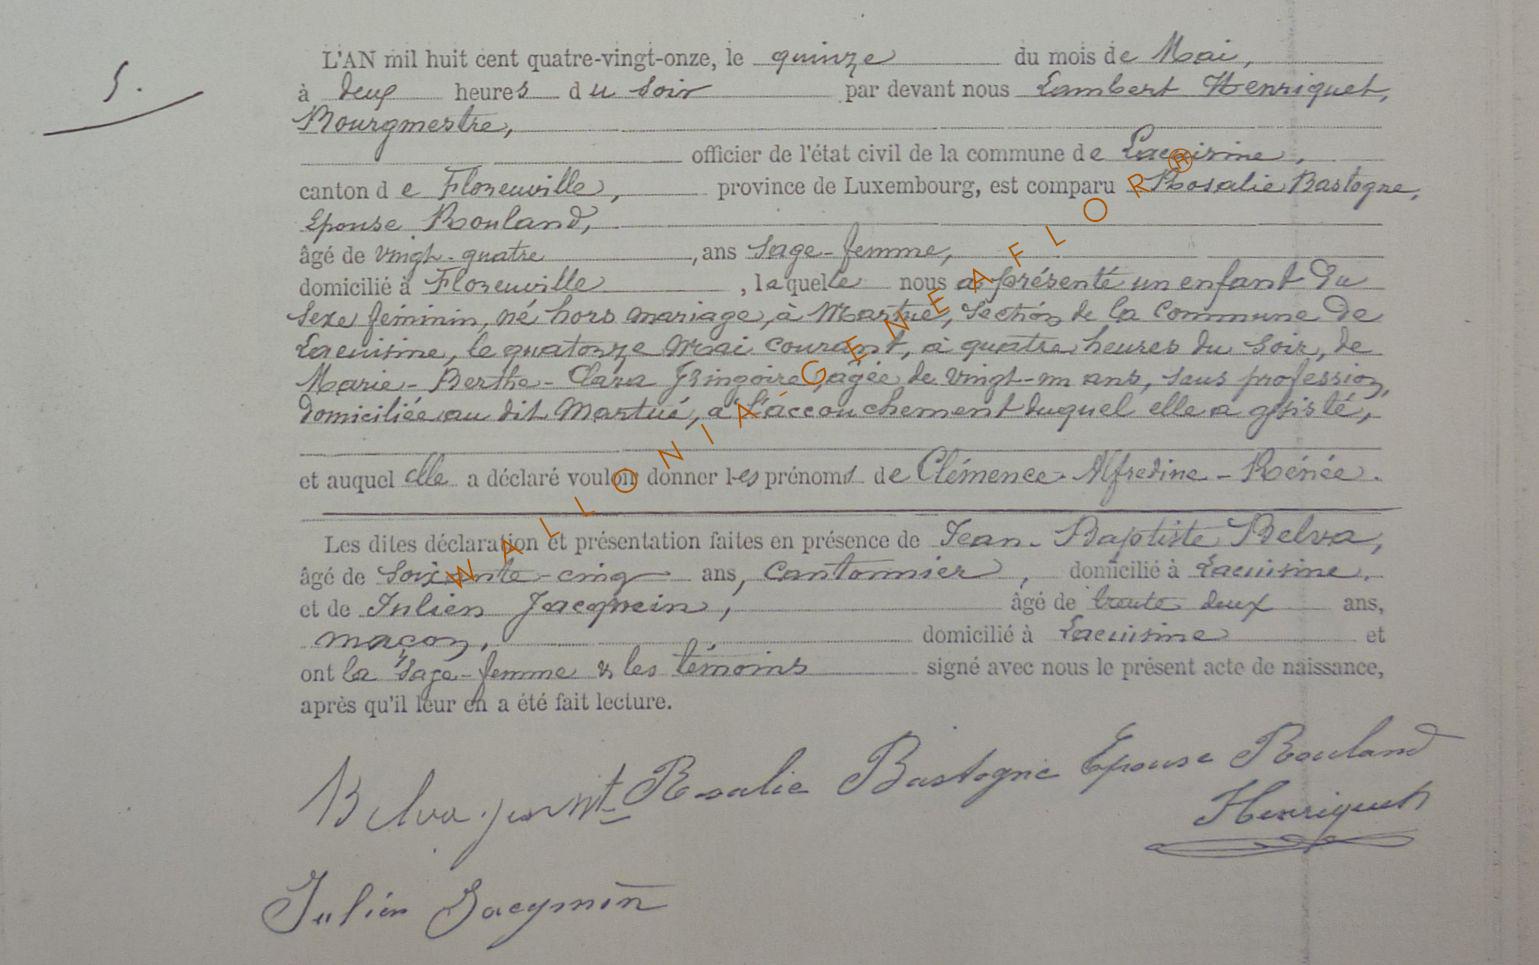 5.
L'AN mil huit cent quatre-vingt-onze, le quinze du mois de Mai,
à deux heures du soir par devant nous Lambert Henriquet,
Bourgmestre,
officier de l'état civil de la commune de Lacuisine,
canton de Florenville, province de Luxembourg, est comparu Rosalie Bastogne,
Epouse Rouland,
âgé de vingt-quatre, ans Sage-femme,
domicilié à Florenville, laquelle nous a présenté un enfant du
sexe féminin, né hors mariage, à Martué, Section de la Commune de
Lacuisine, le quatorze Mai courant, à quatre heures du soir, de
Marie-Berthe-Clara Gringoire, agée de vingt-un ans, sans profession,
domiciliée au dit Martué, à l'accouchement duquel elle a assisté,
et auquel elle a déclaré vouloir donner les prénoms de Clémence-Alfredine-Rénée.
Les dites déclaration et présentation faites en présence de Jean-Baptiste Belva,
âgé de soixante-cinq ans, cantonnier, domicilié à Lacuisine.
et de Julien Jacqmin, âgé de trente deux ans,
maçon, domicilié à Lacuisine et
ont la sage-femme & les témoins signé avec nous le présent acte de naissance,
après qu'il leur en a été fait lecture.
Belva Rosalie Bastogne Epouse Rouland
Henriquet
Julien Jacqmin
WALLONIA-GENEAFLOR®